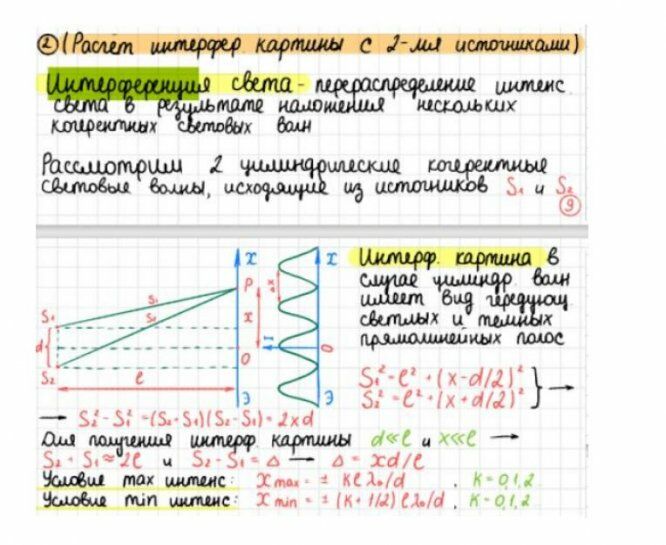 ② (Расчёт интерфер. картины с 2-мя источниками)
Интерференция света - перераспределение интенс.
света в результате наложения нескольких
когерентных световых волн
Рассмотрим 2 цилиндрические когерентные
световые волны, исходящие из источников S₁ и S₂
9
x
P
S₁
S₁
S₂
x
d
O
S₂
l
Э
x
Δx
I
O
Э
Интерф. картина в
случае цилиндр. волн
имеет вид чередующ.
светлых и темных
прямолинейных полос
S₁² = l² + (x-d/2)²
S₂² = l² + (x+d/2)² } →
→ S₂² - S₁² = (S₂+S₁)(S₂-S₁) = 2xd
Для получения интерф. картины d≪l и x≪l →
S₂ + S₁ ≈ 2l и S₂ - S₁ = Δ → Δ = xd/l
Условие max интенс: x max = ± klλ₀/d , k = 0,1,2
Условие min интенс: x min = ± (k+1/2) lλ₀/d , k = 0,1,2